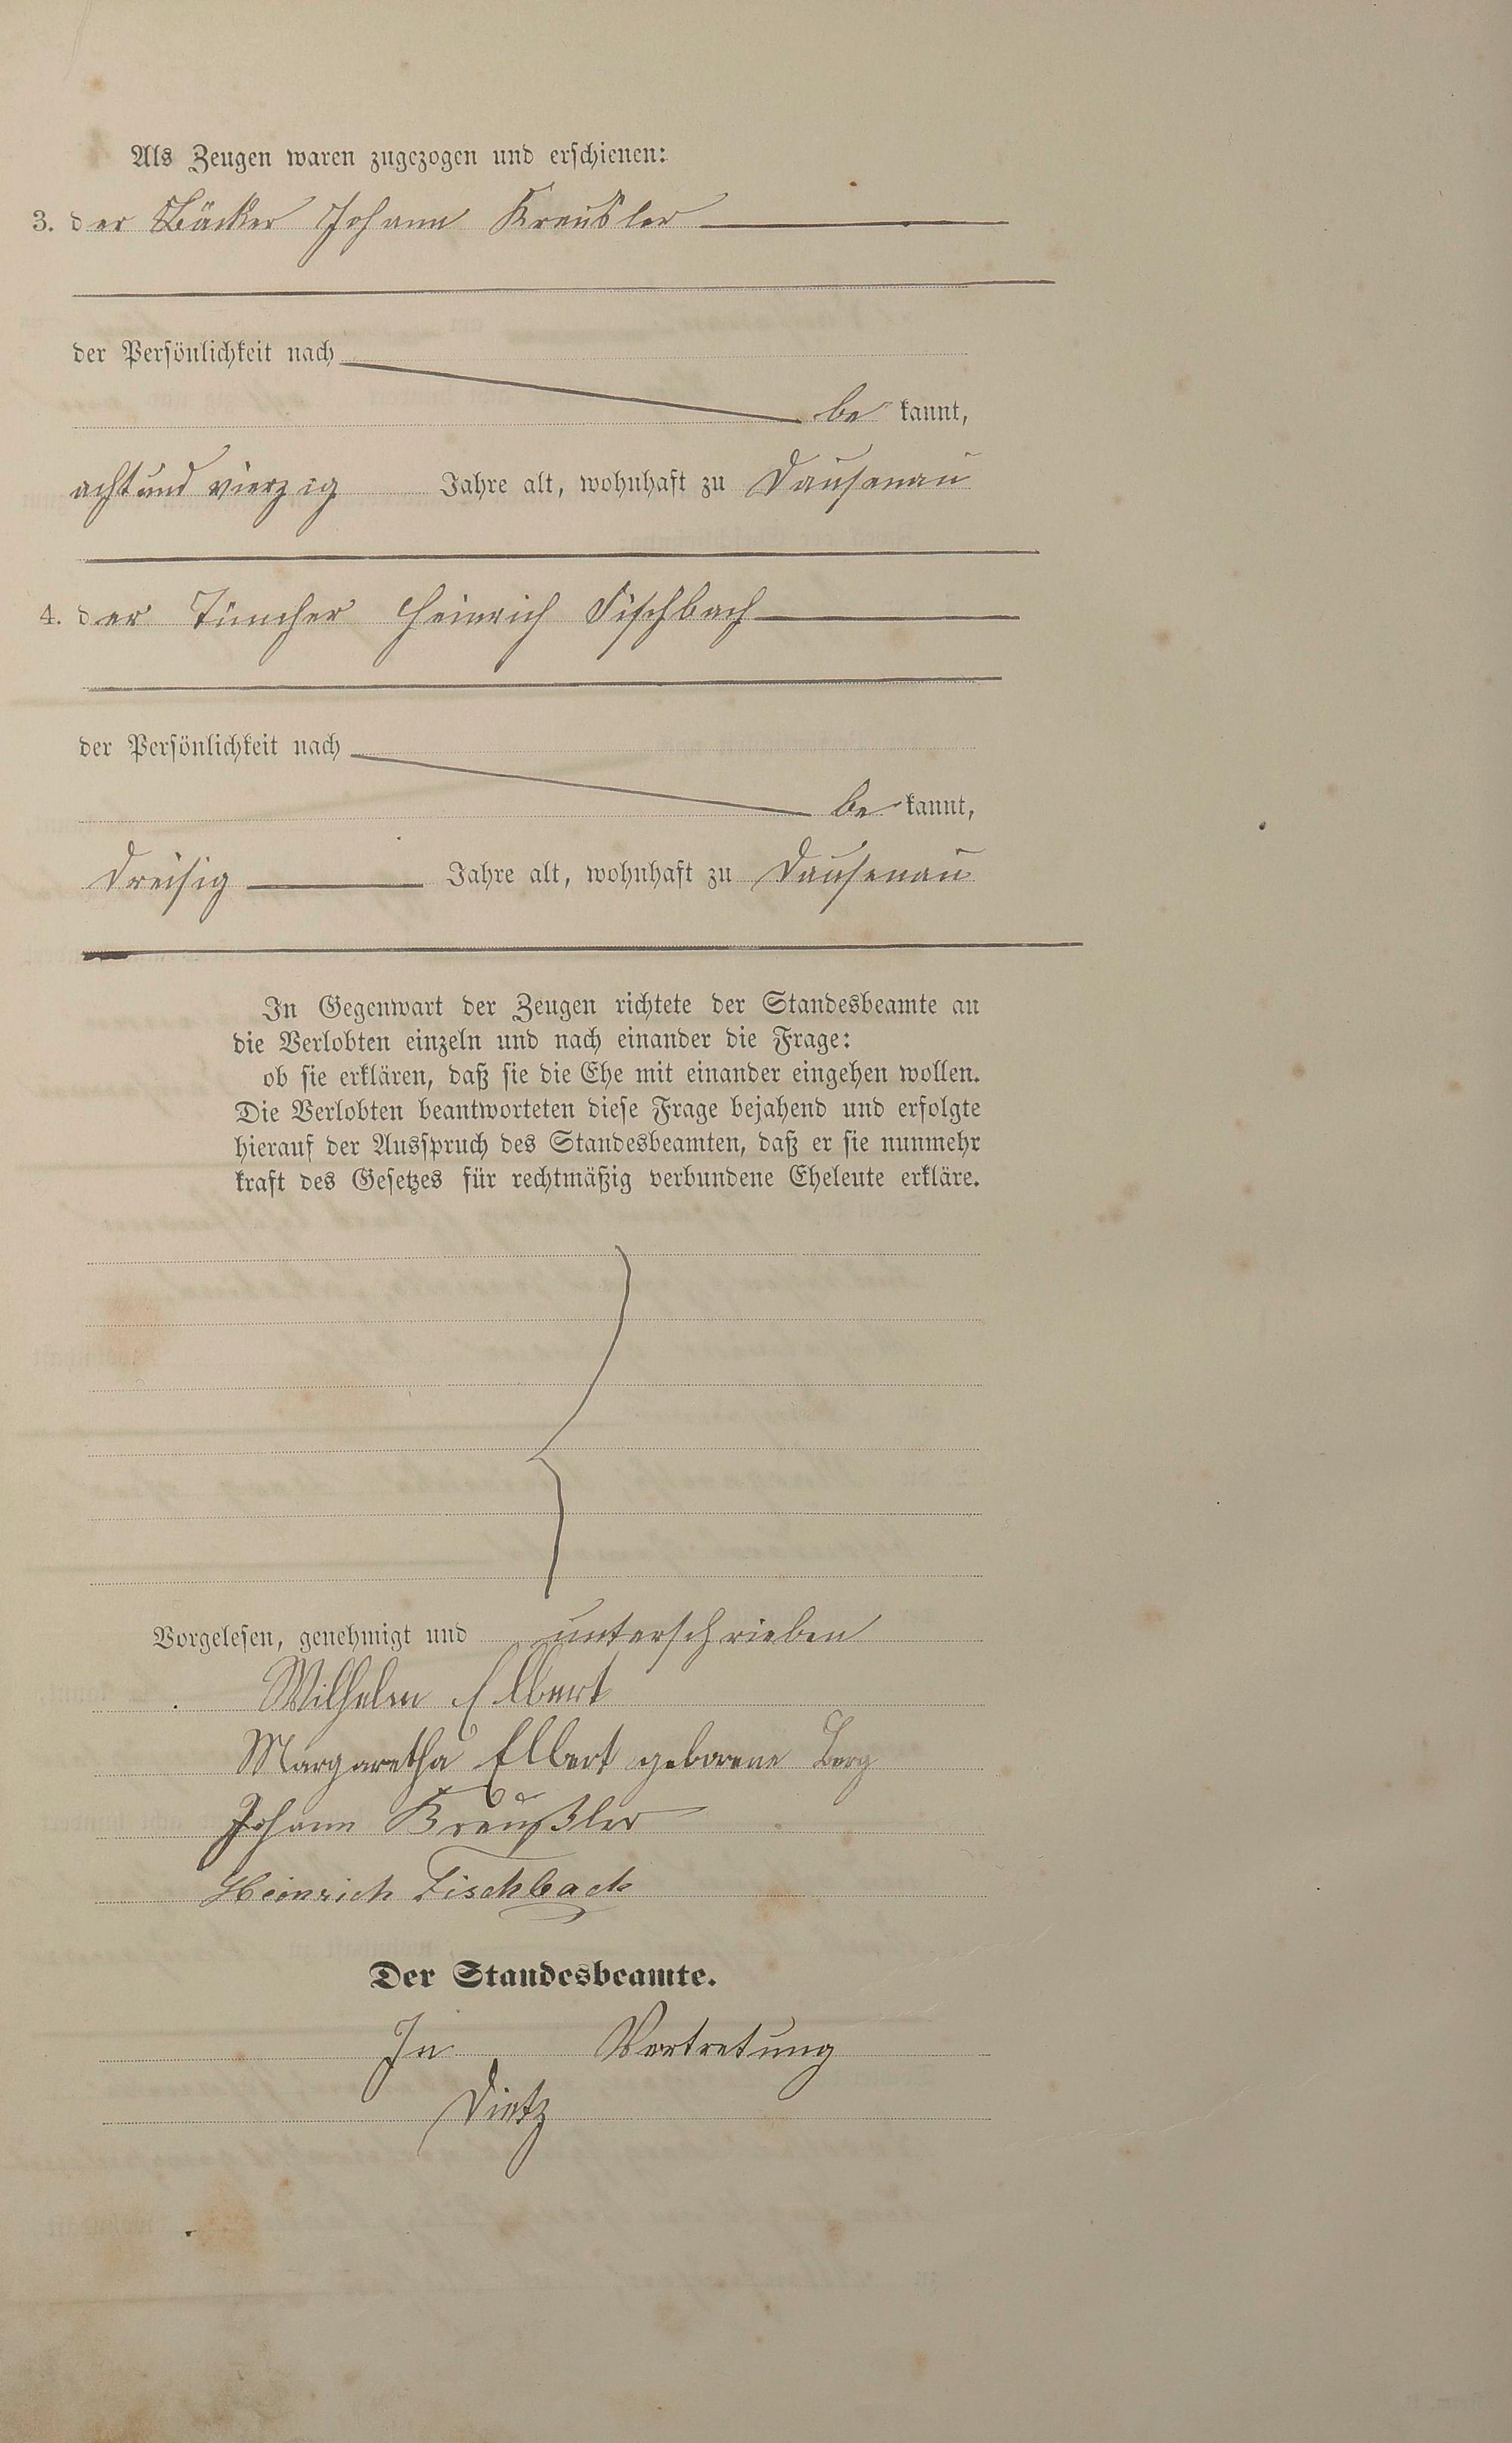 Als Zeugen waren zugezogen und erschienen:
3. der Bäcker Johann Kreußler
der Persönlichkeit nach
be kannt,
achtundvierzig Jahre alt, wohnhaft zu Dausenau
4. der Tüncher Heinrich Fischbach
der Persönlichkeit nach
be kannt,
dreisig Jahre alt, wohnhaft zu Dausenau
In Gegenwart der Zeugen richtete der Standesbeamte an
die Verlobten einzeln und nach einander die Frage:
ob sie erklären, daß sie die Ehe mit einander eingehen wollen.
Die Verlobten beantworteten diese Frage bejahend und erfolgte
hierauf der Ausspruch des Standesbeamten, daß er sie nunmehr
kraft des Gesetzes für rechtmäßig verbundene Eheleute erkläre.
Vorgelesen, genehmigt und unterschrieben
Wilhelm Elbert
Margaretha Elbert geborene Berg
Johann Kreußler
Heinrich Fischbach
Der Standesbeamte.
In Vertretung
Dietz